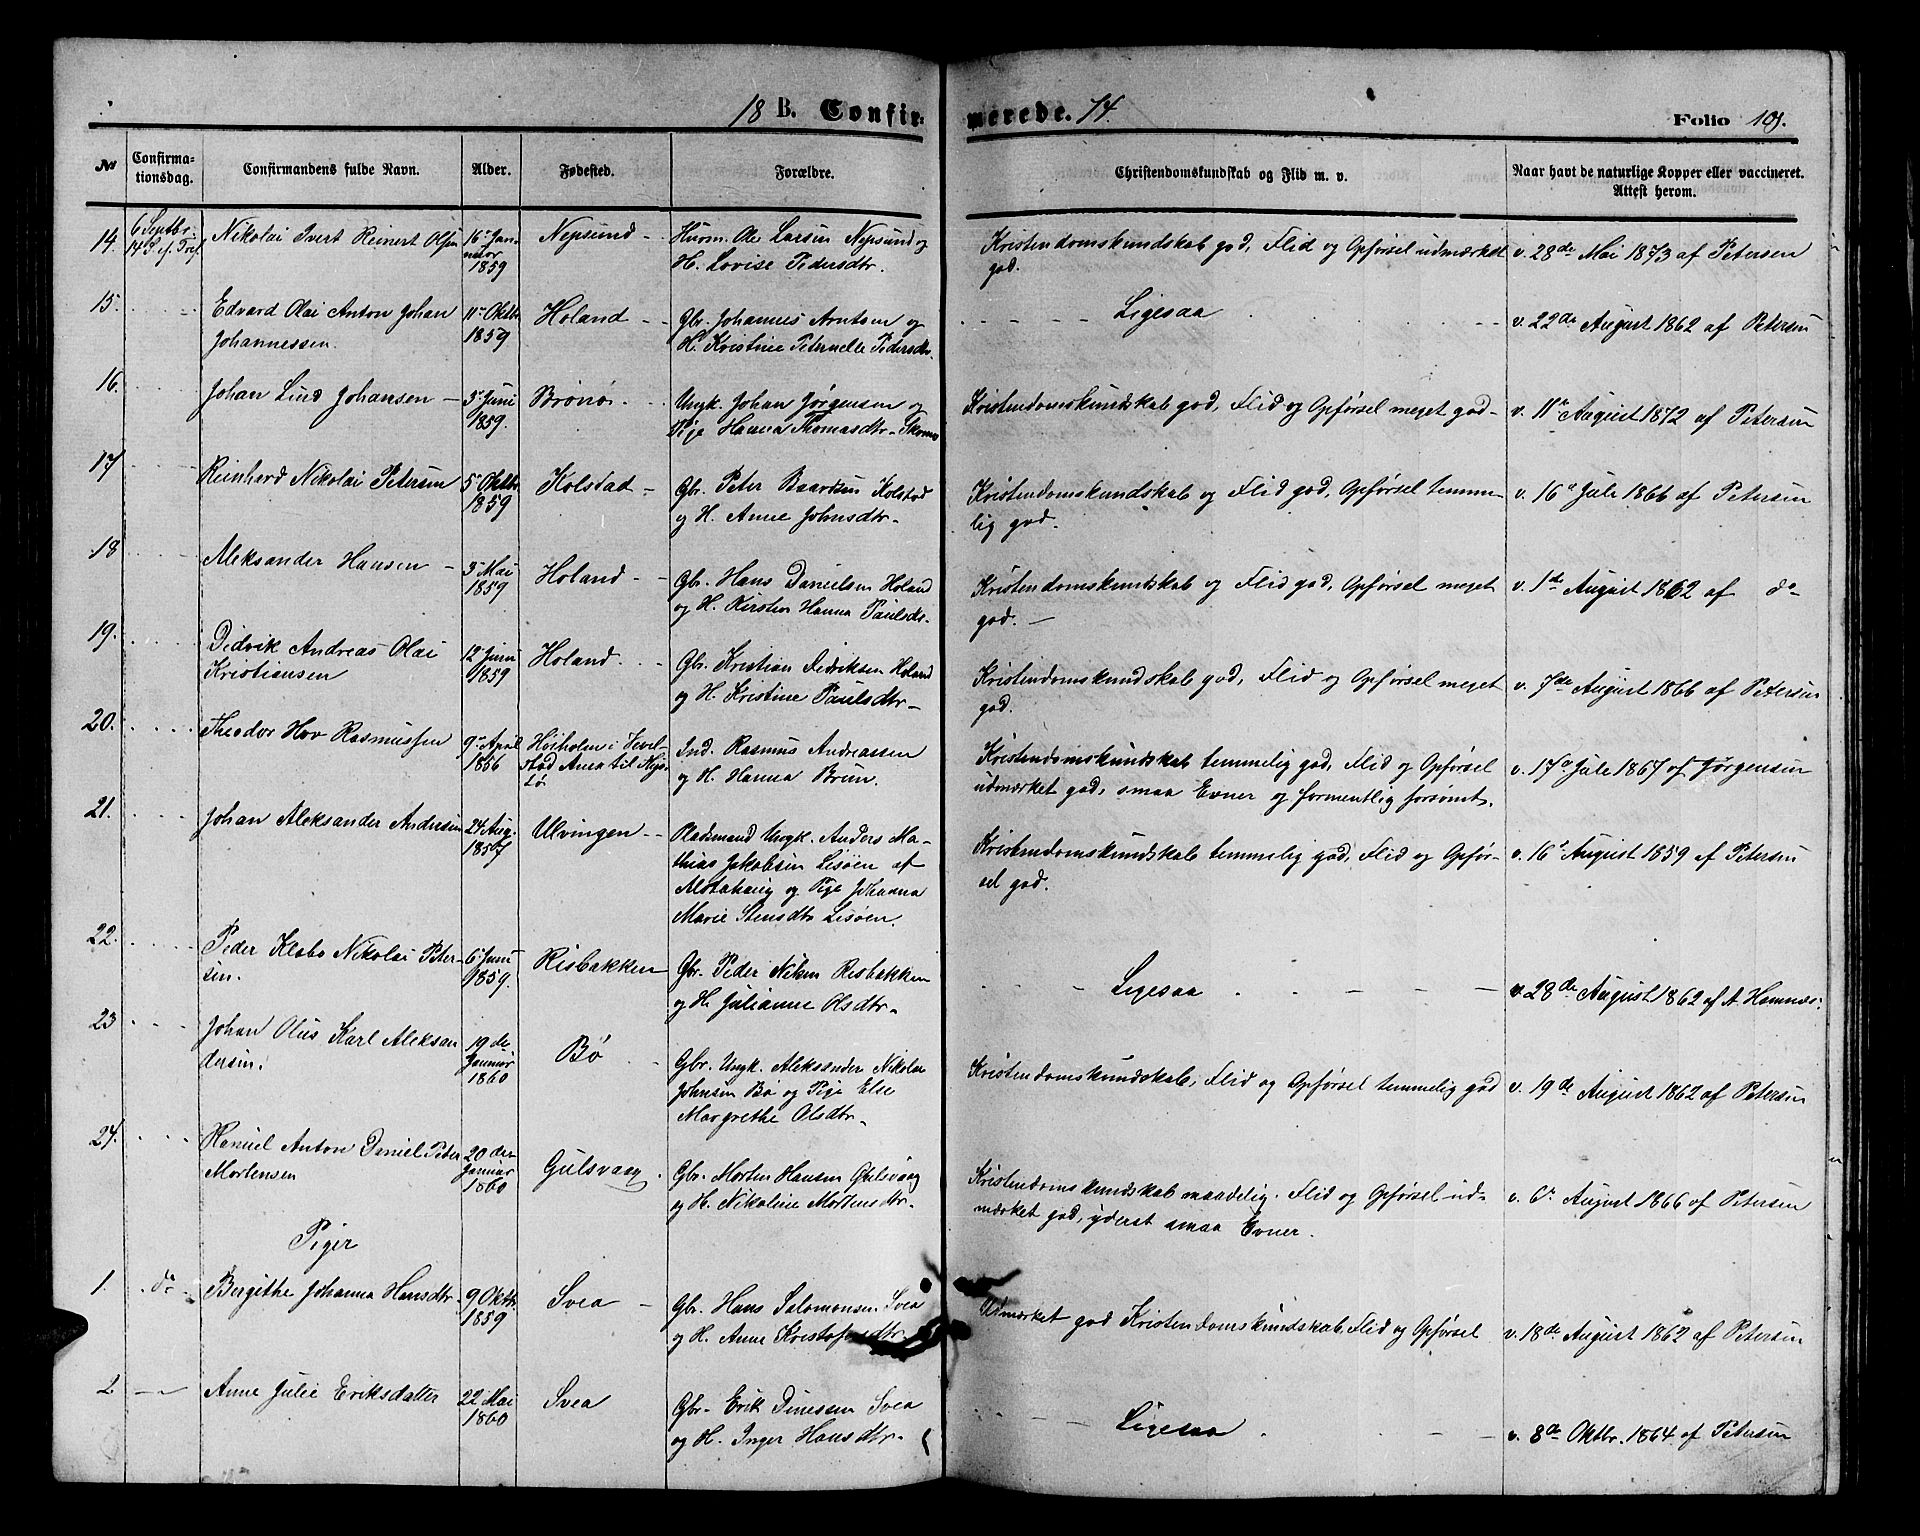 18 B. Confirmerede. 74. Folio 109.
№ Confirmationsdag. Confirmandens fulde Navn. Alder. Fødested. Forældre. Christendomskundskab og Flid m. v. Naar havt de naturlige Kopper eller vaccineret. Attest herom.
14. 6 Septbr. 14 S. ef. Tref.
Nikolai Ivert Reinert Olsen
16 Januar 1859
Nepsund
Huusm. Ole Larsen Nepsund og
H. Lovise Pedersdtr.
Kristendomskundskab god, Flid og Opførsel udmærket
god.
v. 28de Mai 1873 af Petersen
15.
Edvard Olai Anton Johan
Johannessen.
11 Oktbr 1859
Holand
Gbr. Johannes Arntsen og
H. Kristine Peternelle Pedersdtr.
Ligesaa
v. 22de August 1862 af Petersen
16.
Johan Lind Johansen
5 Juni 1859.
Brönö
Ungk. Johan Jørgensen og
Pige Hanna Thomasdtr.
Kristendomskundskab god, Flid og Opførsel meget god
v. 11te August 1872 af Petersen
17
Reinhard Nikolai Petersen
5 Oktbr 1859
Kolstad
Gbr. Peter Baardsen Kolstad
og H. Anne Johnsdtr.
Kristendomskundskab og Flid god, Opførsel temme-
lig god.
v. 16 Juli 1866 af Petersen
18
Aleksander Hansen
3 Mai 1859
Holand
Gbr. Hans Danielsen Holand
og H. Kirsten Hanna Paulsdr.
Kristendomskundskab og Flid god, Opførsel meget
god.
v. 1de August 1862 af do
19.
Didrik Andreas Olai
Kristiansen
12 Juni 1859
Holand
Gbr. Kristian Didriksen Holand
og H. Kristine Paulsdtr
Kristendomskundskab god, Flid og Opførsel meget
god.
v. 7de August 1866 af Petersen
20.
Theodor Hov Rasmussen
9 April 1856
Høiholm i Vevel-
stad Anex til
Ind. Rasmus Andreassen
og H. Hanna Brun.
Kristendomskundskab temmelig god, Flid og Opførsel
udmærket god, smaa Evner og formentlig forsømt.
v. 17 Juli 1867 af Jørgensen
21.
Johan Aleksander Andersen
24 Aug. 1857
Ulvingen
Pladsmand Ungk. Anders Ma-
thias Jakobsen Lisøen af
Alstahaug og Pige Johanna
Marie Stensdtr Lisøen.
Kristendomskundskab temmelig god, Flid og Opfør-
sel god.
v. 16 August 1859 af Petersen
22.
Peder Klabo Nikolai Peter-
sen.
6 Juni 1859.
Risbakken
Gbr. Peder Nilsen Risbakken
og H. Julianne Olsdtr.
Ligesaa
v. 28de August 1862 af A. Hamnes:
23
Johan Olus Karl Aleksan
dersen.
19de Januar 1860
Bø
Gbr. Ungk. Aleksander Nikolai
Johnsen Bø og Pige Else
Margrethe Olsdtr.
Kristendomskundskab, Flid og Opførsel temmelig god
v. 19de August 1862 af Petersen
24.
Hanuel Anton Daniel Peder
Mortensen
20de Januar 1860
Gulsvaag
Gbr. Morten Hansen Gulsvaag
og H. Nikoline Mortensdtr.
Kristendomskundskab maadelig. Flid og Opførsel ud-
mærket god, yderst smaa Evner.
v. 6 August 1866 af Petersen
Piger
1. do
Bergithe Johanna Hansdtr.
9 Oktbr. 1859
Svea
Gbr. Hans Salomonsen Svea
og H. Anne Kristofersdtr.
Udmærket god Kristendomskundskab, Flid og Opførsel
v. 18de August 1862 af Petersen
2
Anne Julie Eriksdatter
22 Mai 1860
Svea
Gbr. Erik Dinessen Svea
og H. Inger Hansdtr.
Ligesaa
v. 8de Oktbr. 1864 af Petersen